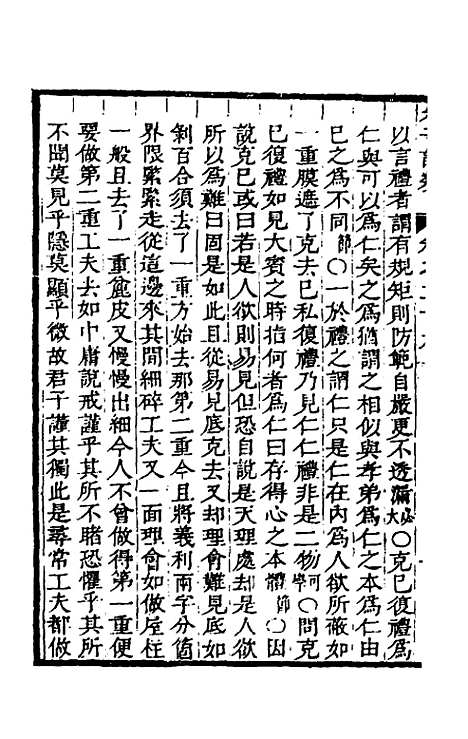 以言禮者謂有規矩則防範自嚴更不透漏必大〇克已復禮爲
仁與可以爲仁矣之爲猶謂之相似與孝弟爲仁之本爲仁由
已之爲不同節〇一於禮之謂仁只是仁在內爲人欲所蔽如
一重膜遮了克去已私復禮乃見仁仁禮非是二物可學〇問克
已復禮如見大賓之時指何者爲仁曰存得心之本體節〇因
說克已或曰若是人欲則易見但恐自說是天理處却是人欲
所以爲難曰固是如此且從易見底克去又却理會難見底如
剝百合須去了一重方始去那第二重今且將義利兩字分箇
界限緊緊走從這邊來其閒細碎工夫又一面理會如做屋柱
一般且去了一重麄皮又慢慢出細今人不曾做得第一重便
要做第二重工夫去如中庸說戒謹乎其所不睹恐懼乎其所
不聞莫見乎隱莫顯乎微故君子謹其獨此是尋常工夫都做